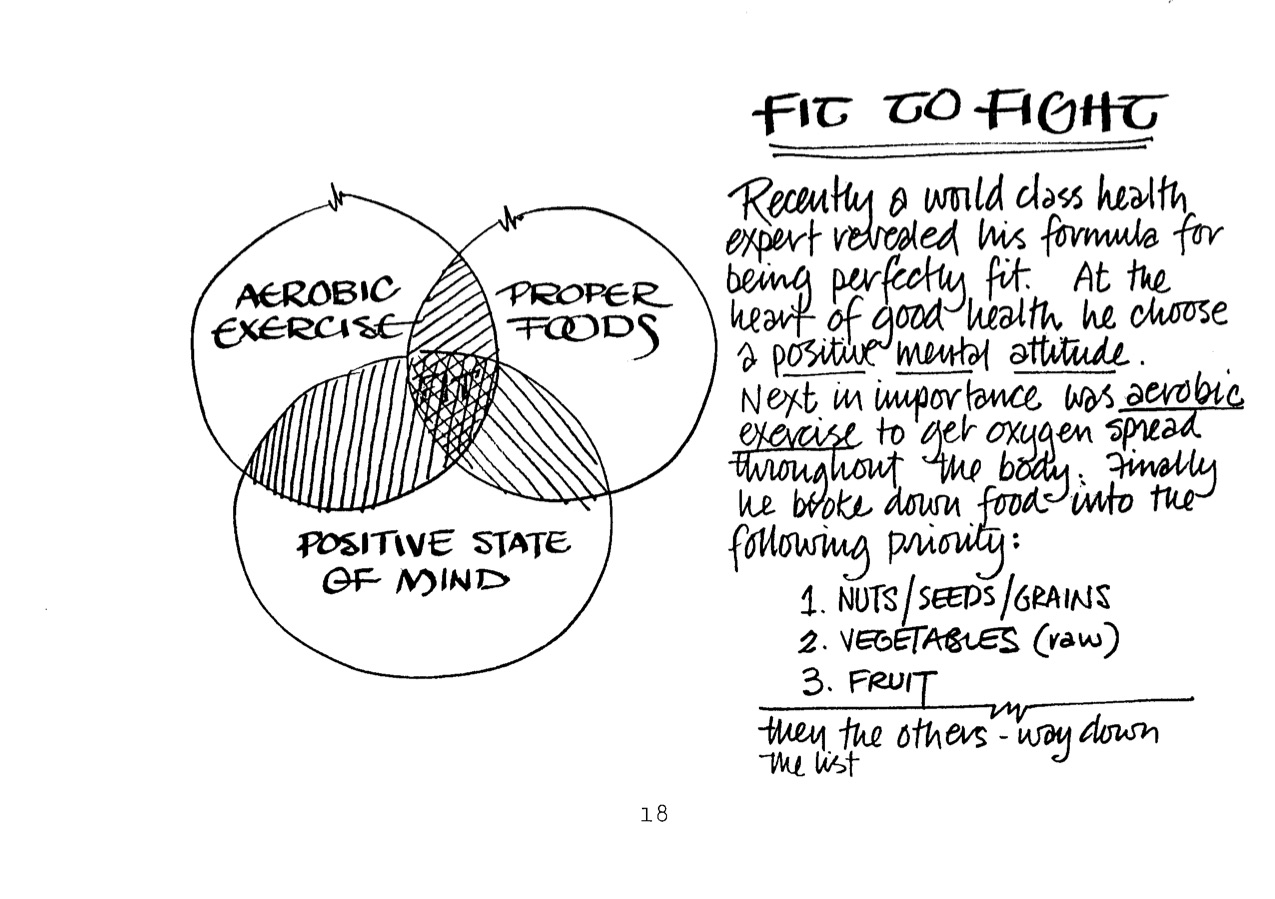 FIT TO FIGHT
AEROBIC
EXERCISE
PROPER
FOODS
FIT
POSITIVE STATE
OF MIND
Recently a world class health
expert revealed his formula for
being perfectly fit. At the
heart of good health he choose
a positive mental attitude.
Next in importance was aerobic
exercise to get oxygen spread
throughout the body. Finally
he broke down food into the
following priority:
1. NUTS/SEEDS/GRAINS
2. VEGETABLES (raw)
3. FRUIT
then the others - way down
the list
18